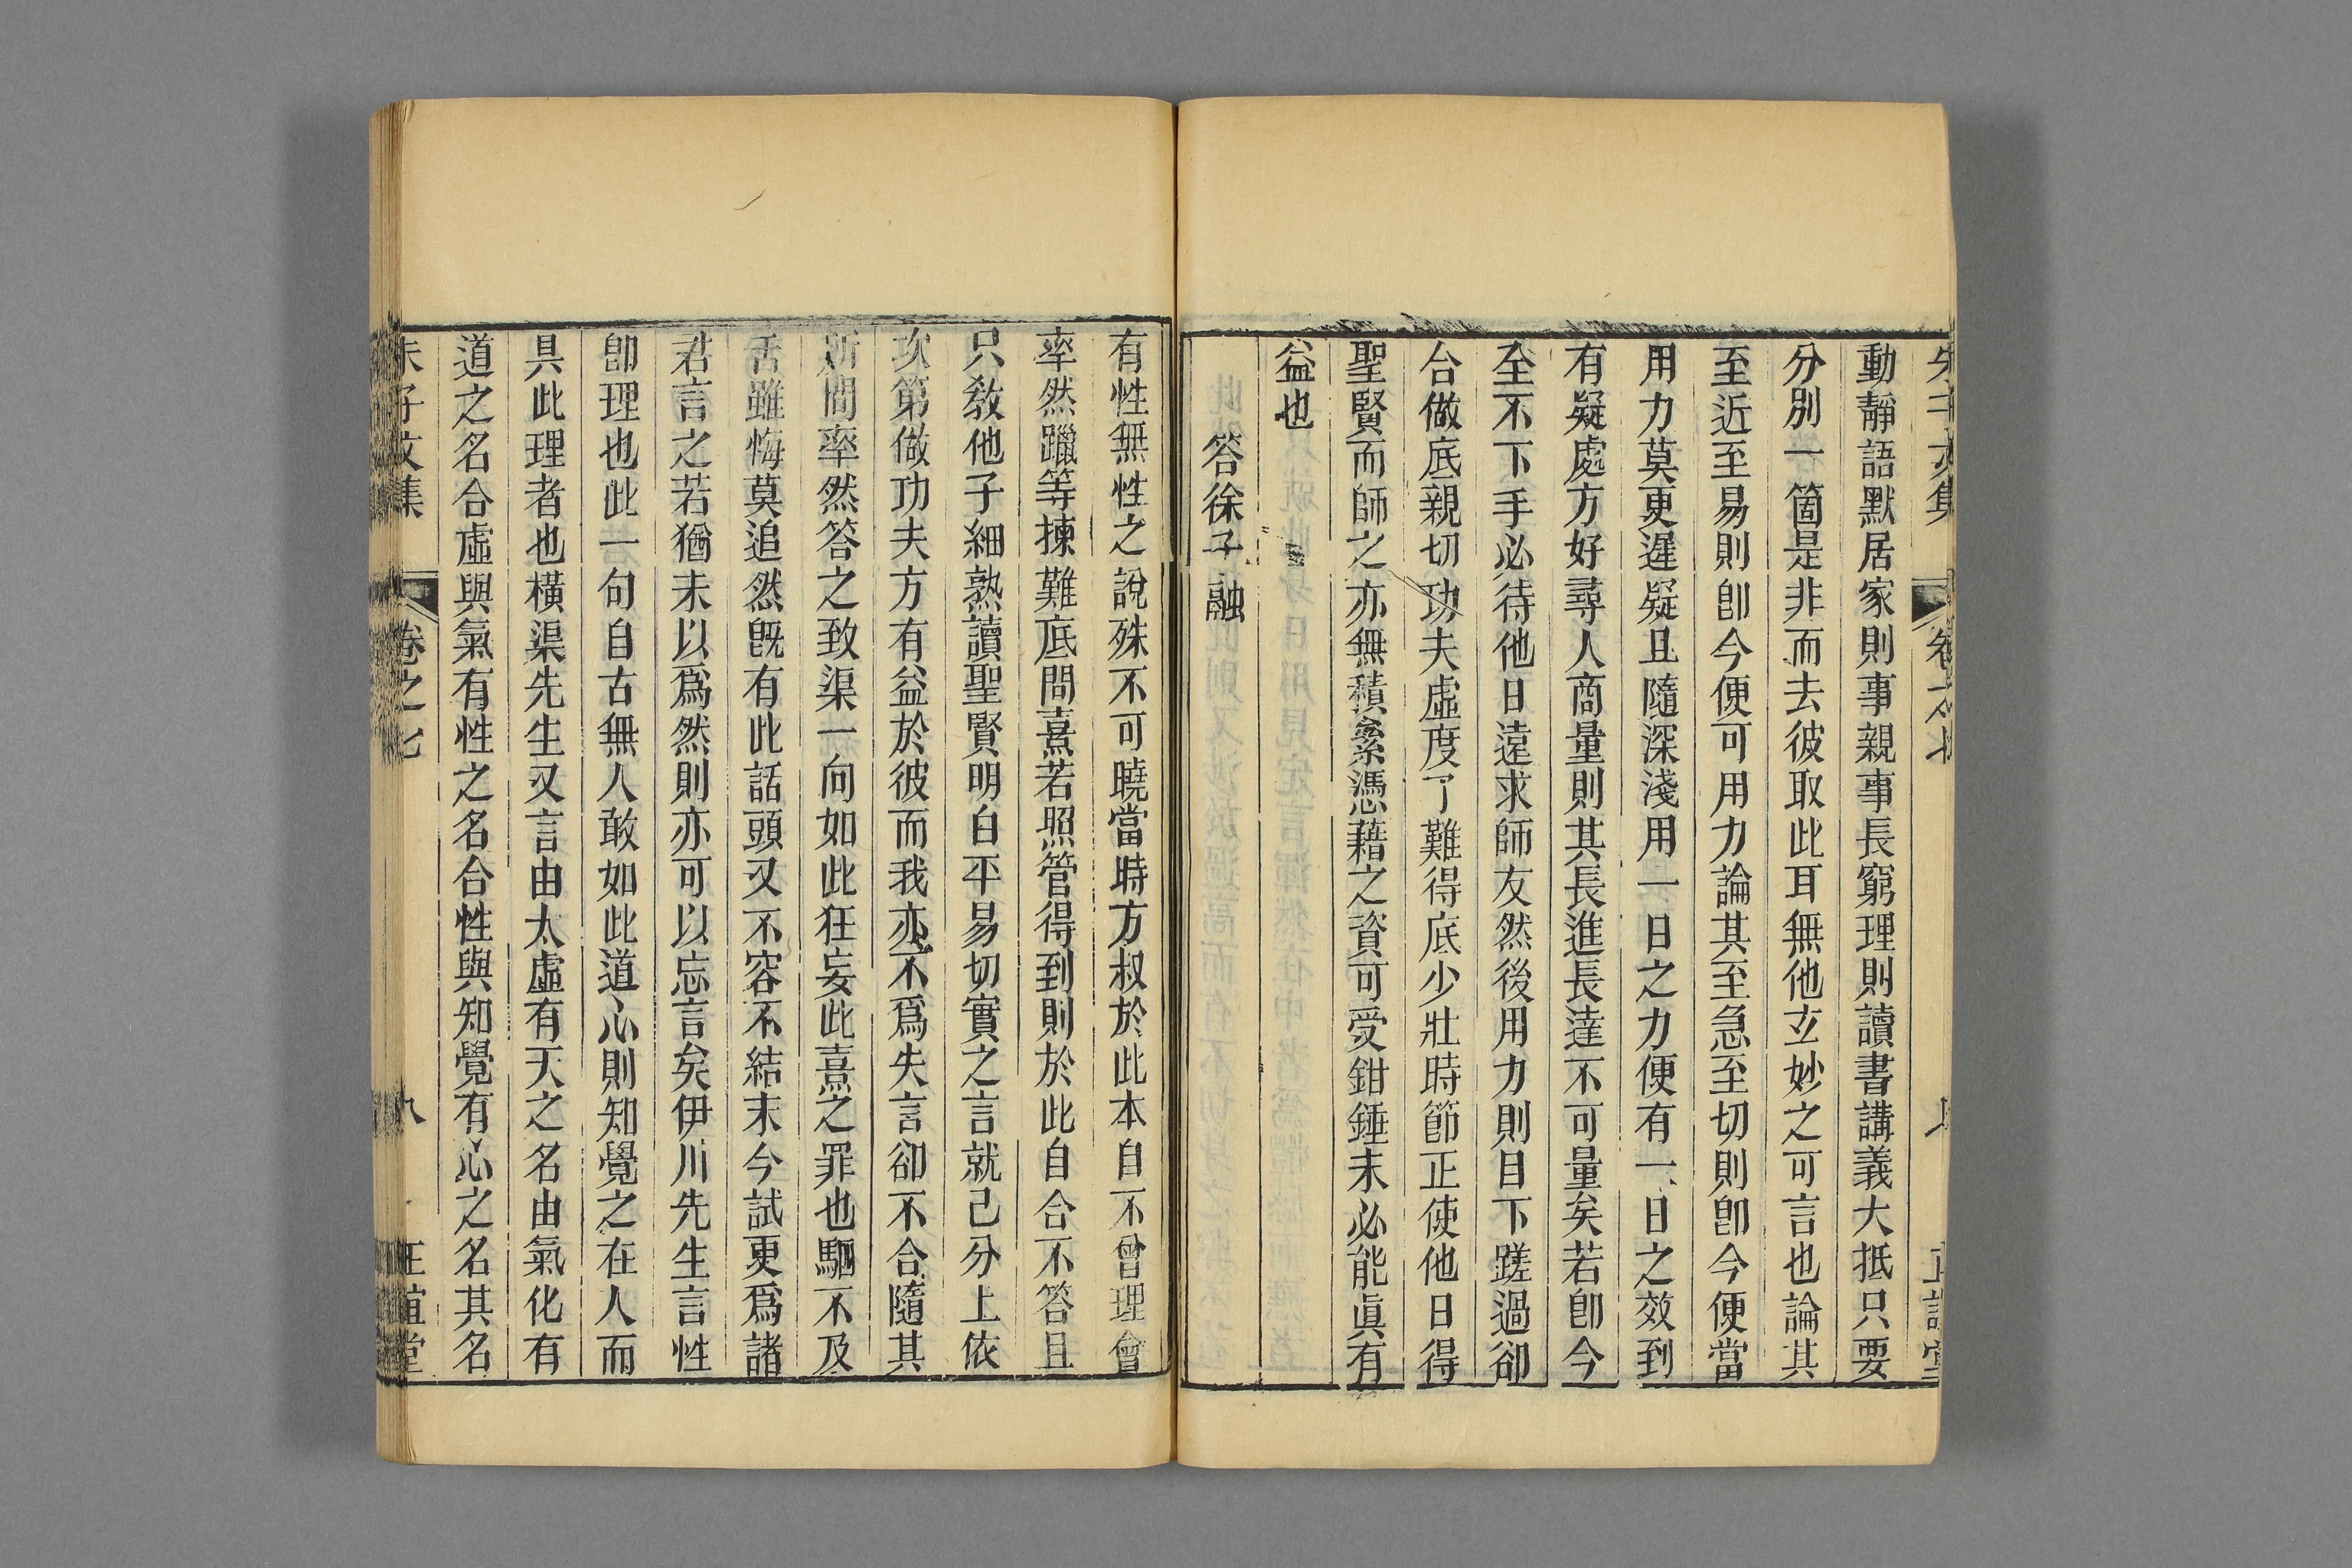 動靜語默居家則事親事長窮理則讀書講義大抵只要
分別一箇是非而去彼取此耳無他玄妙之可言也論其
至近至易則卽今便可用力論其至急至切則卽今便當
用力莫更遲疑且隨深淺用一日之力便有一日之效到
有疑處方好尋人商量則其長進長達不可量矣若卽今
全不下手必待他日遠求師友然後用力則目下蹉過卻
合做底親切功夫虛度了難得底少壯時節正使他日得
聖賢而師之亦無積絫憑藉之資可受鉗錘未必能眞有
益也
答徐子融
有性無性之說殊不可曉當時方叔於此本自不曾理會
率然躐等揀難底問熹若照管得到則於此自合不答且
只敎他子細熟讀聖賢明白平易切實之言就己分上依
次第做功夫方有益於彼而我亦不爲失言卻不合隨其
所問率然答之致渠一向如此狂妄此熹之罪也駟不及
舌雖悔莫追然旣有此話頭又不容不結末今試更爲諸
君言之若猶未以爲然則亦可以忘言矣伊川先生言性
卽理也此一句自古無人敢如此道心則知覺之在人而
具此理者也橫渠先生又言由太虛有天之名由氣化有
道之名合虛與氣有性之名合性與知覺有心之名其名
朱子文集 卷之七 九 正誼堂